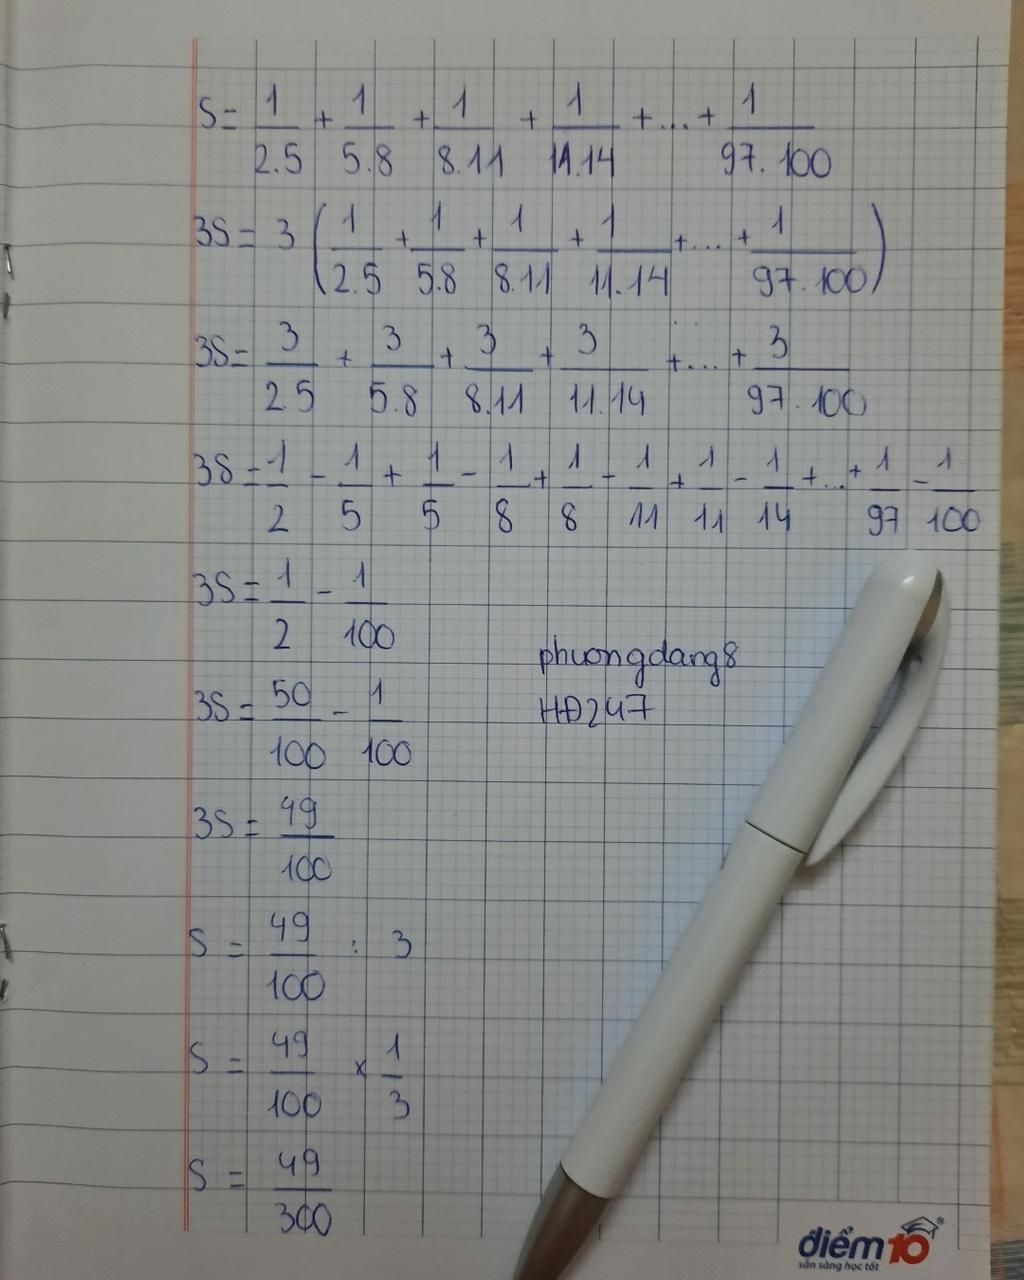 S = 1/2.5 + 1/5.8 + 1/8.11 + 1/11.14 + ... + 1/97.100
3S = 3 (1/2.5 + 1/5.8 + 1/8.11 + 1/11.14 + ... + 1/97.100)
3S = 3/2 5 + 3/5.8 + 3/8.11 + 3/11.14 + ... + 3/97.100
3S = 1/2 - 1/5 + 1/5 - 1/8 + 1/8 - 1/11 + 1/11 - 1/14 + ... + 1/97 - 1/100
3S = 1/2 - 1/100
phuongdang8
3S = 50/100 - 1/100
HĐ247
3S = 49/100
S = 49/100 : 3
S = 49/100 x 1/3
S = 49/300
điểm 10
sẵn sàng học tốt